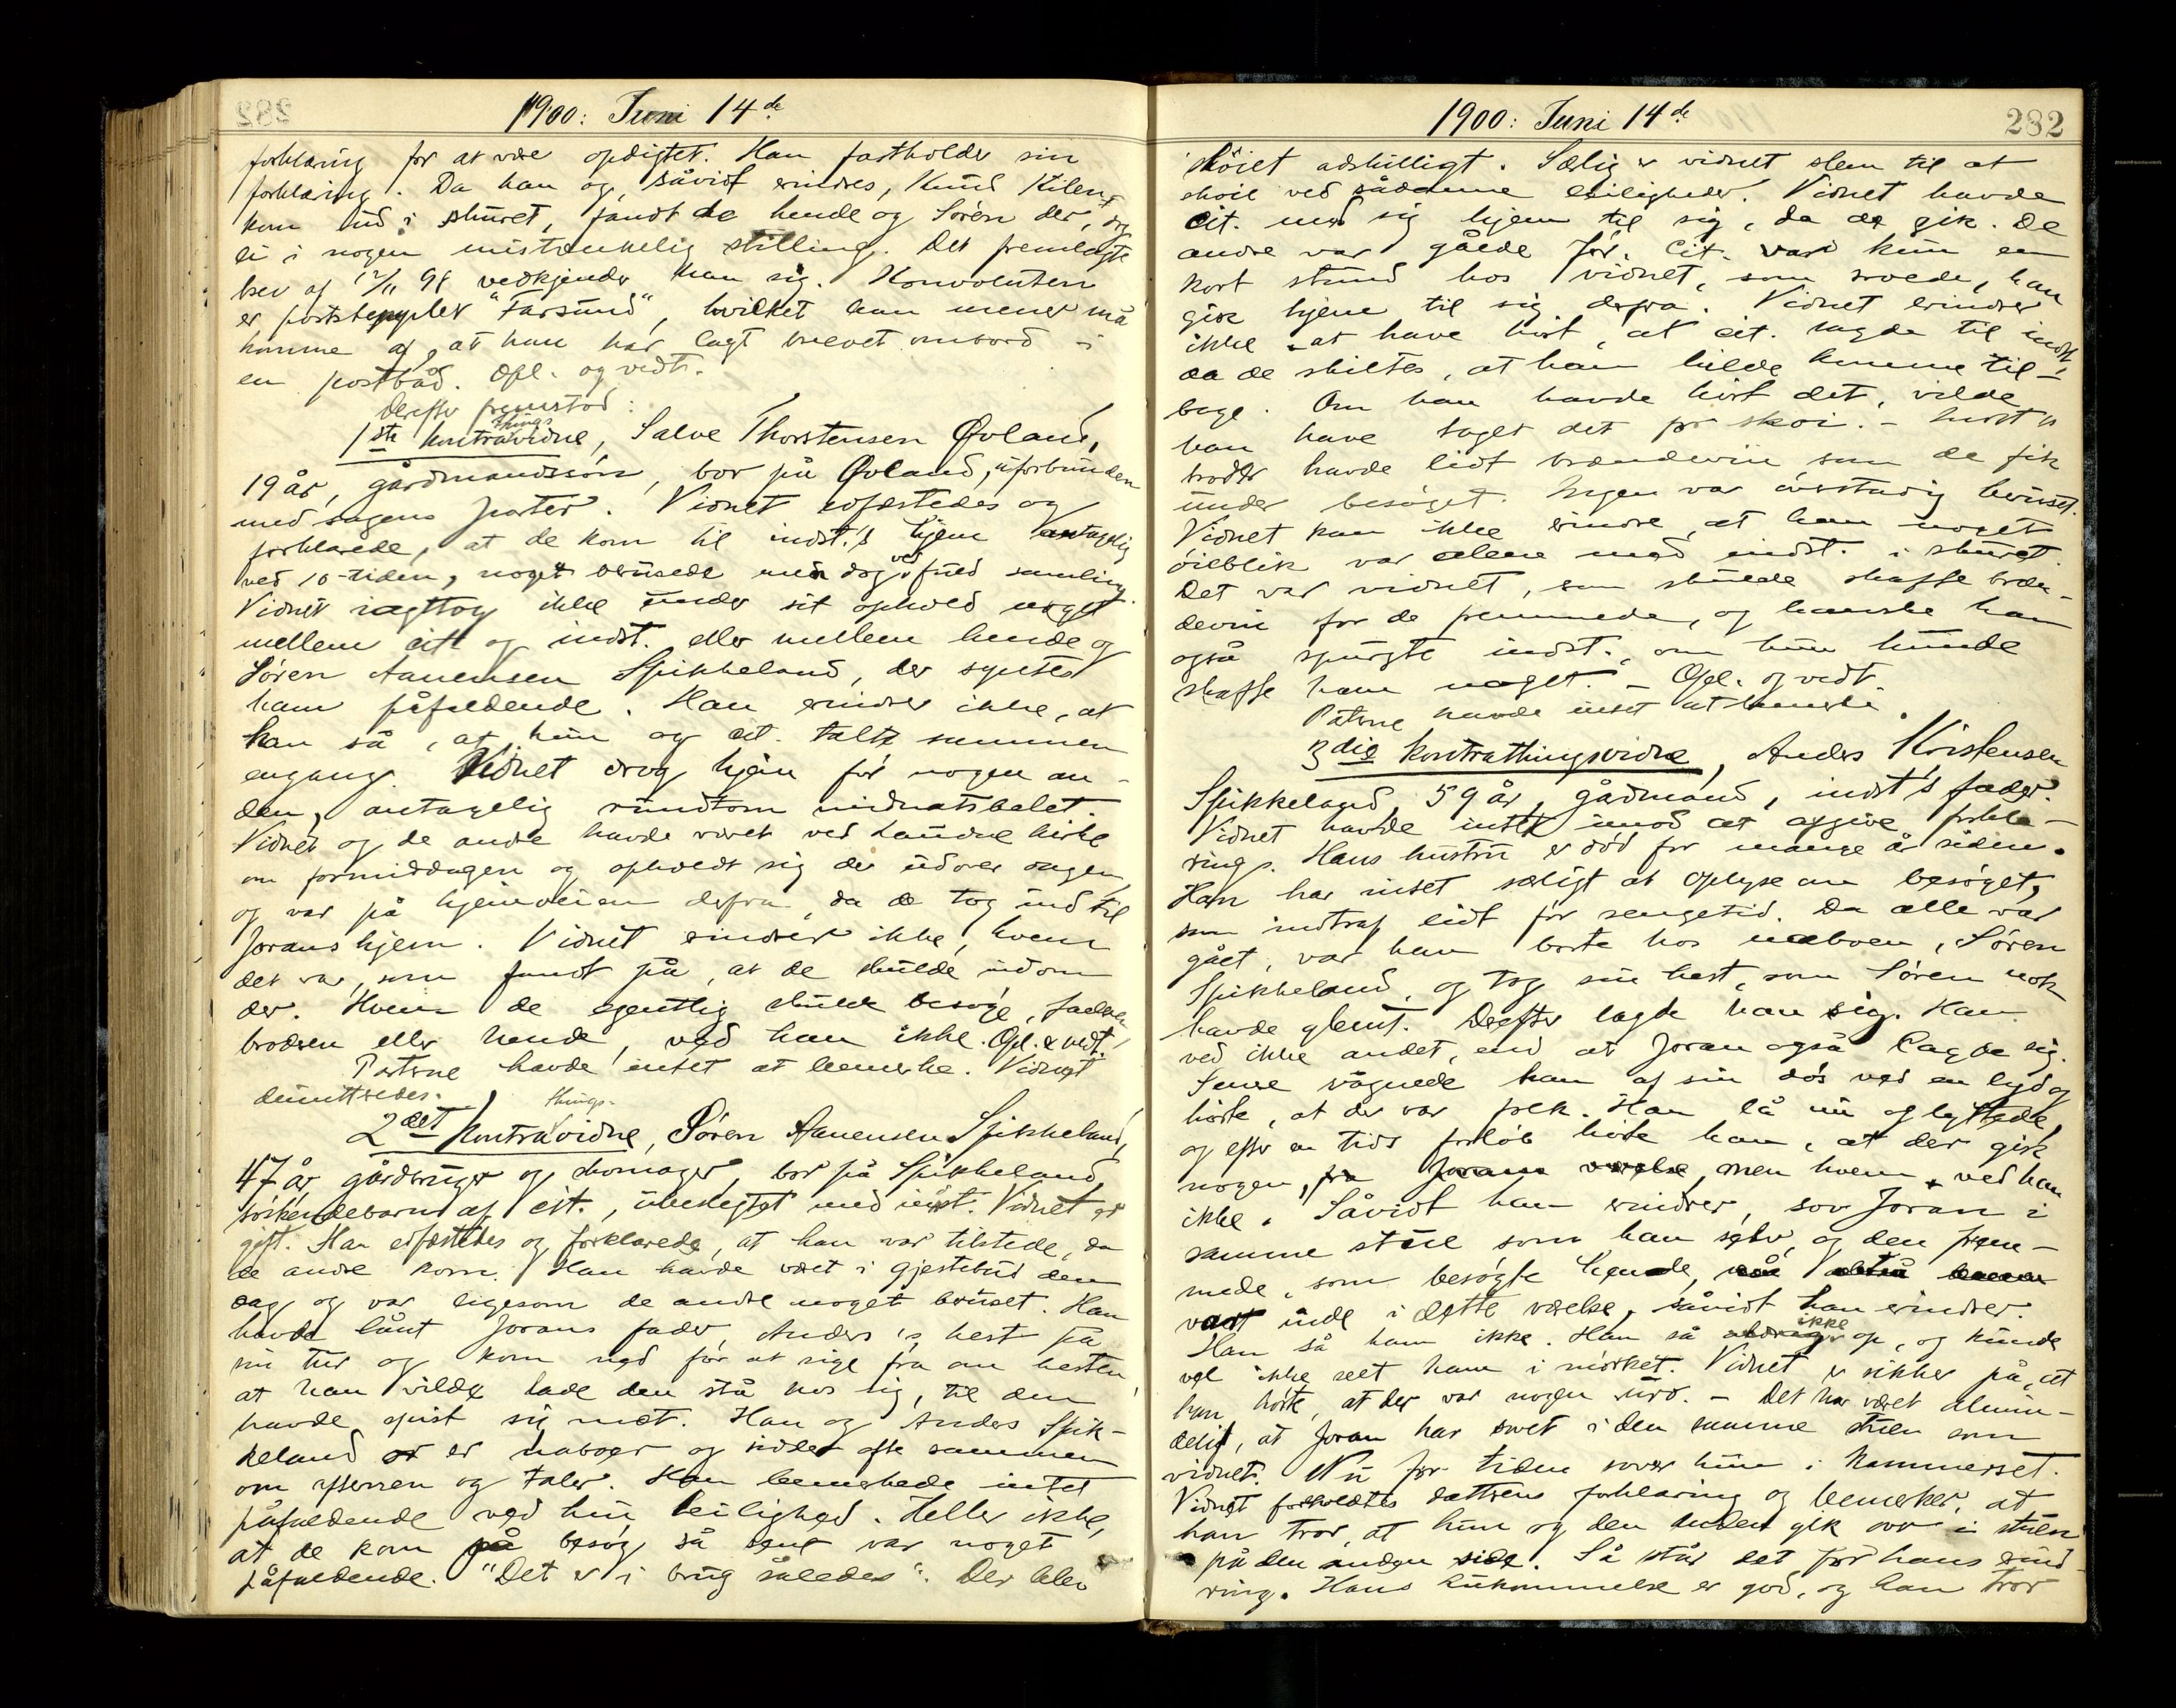 1900: Juni 14de
forklaring for at være opdigtet. Han fastholder sin
forklaring. Da han og, såvidt erindres, Knud Kilen
kom ind i stuet, fandt de hende og Sören der, dog
ei i nogen mistænkelig stilling. Det fremlagte
brev af 12/11 98 vedkjender han sig. Konvolutten
er poststemplet "Farsund", hvilket han mener må
komme af, at han har lagt brevet ombord i
en postbåd. Opl. og vedt.
Derefter fremstod:
1ste kontrathingsvidne, Salve Thorstensen Øvland,
19 år, gårdmandssön, bor på Øvland, uforbunden
med sagens parter. Vidnet edfæstedes og
forklarede, at de kom til indst.'s hjem antagelig
ved 10-tiden, noget berusede men dog ved fuld samling.
Vidnet iagttog ikke under sit ophold noget
mellem cit. og indst. eller mellem hende og
Sören Aanensen Spikkeland, der syntes
ham påfaldende. Han erindrer ikke, at
han så, at hun og cit. talte sammen
engang. Vidnet drog hjem för nogen an-
den, antagelig rundtom midnatsbelet.
Vidnet og de andre havde været ved Laudal kirke
om formiddagen og opholdt sig der udover dagen
og var på hjemveien derfra, da de tog ind til
Jorans hjem. Vidnet erindrer ikke, hvem
det var, som fandt på, at de skulde indom
der. Hvem de egentlig skulde besöge, faderen,
broderen eller hende, ved han ikke. Opl. & vedt.
Parterne havde intet at bemerke. Vidnet
demitteredes.
2det kontrathingsvidne, Sören Aanensen Spikkeland,
47 år, gårdbruger og skomager, bor på Spikkeland,
söskendebarn af cit., ubeslegtet med indst. Vidnet er
gift. Han edfæstedes og forklarede, at han var tilstede, da
de andre kom. Han havde været i gjestebud den
dag og var ligesom de andre noget beruset. Han
havde lånt Jorans fader, Anders's hest på
sin tur og kom ned for at sige fra om hesten,
at han vilde lade den stå hos sig, til den
havde spist sig mæt. Han og Anders Spik-
keland er naboer og sidder ofte sammen
om aftenen og taler. Han bemerkede intet
påfaldende ved hin leilighed. Heller ikke,
at de kom på besög så sent var noget
påfaldende. "Det er i brug således". Der blev
1900: Juni 14de
282
sköiet adskilligt. Særlig er vidnet slem til at
sköie ved sådanne leiligheder. Vidnet havde
cit. med sig hjem til sig, da de gik. De
andre var gåede för. Cit. var kun en
kort stund hos vidnet, som troede, han
gik hjem til sig derfra. Vidnet erindrer
ikke at have hört, at cit. sagde til indst.,
da de skiltes, at han vilde komme til-
bage. Om han havde hört det, vilde
han have taget det for sköi. - Indst's
broder havde lidt brændevin, som de fik
under besöget. Ingen var överstadig beruset.
Vidnet kan ikke erindre, at han noget
öieblik var alene med indst. i stuet.
Det var vidnet, som skulde skaffe bræn-
devin for de fremmede, og kanske han
også spurgte indst., om hun kunde
skaffe ham noget. - Opl. og vedt.
Parterne havde intet at bemerke.
3die kontrathingsvidne, Anders Kristensen
Spikkeland, 59 år, gårdmand, indst's fader.
Vidnet havde intet imod at afgive forkla-
ring. Hans hustru er död for mange år siden.
Han har intet særligt at oplyse om besöget,
som indtraf lidt för sengetid. Da alle var
gået, var han borte hos naboen, Sören
Spikkeland, og tog sin hest, som Sören nok
havde glemt. Derefter lagde han sig. Han
ved ikke andet, end at Joran også lagde sig.
Senere vågnede han af sin dös ved en lyd og
hörte, at der var folk. Han lå nu og lyttede,
og efter en tids forlöb hörte han, at der gik
nogen, fra Jorans værelse, men hvem, ved han
ikke. Såvidt han erindrer, sov Joran i
samme stue som han selv, og den frem-
mede, som besögte hende,
var inde i dette værelse, såvidt han erindrer.
Han så ham ikke. Han så ikke op, og kunde
vel ikke seet ham i mörket. Vidnet er sikker på, at
han hörte, at der var nogen uro. - Det har været almin-
deligt, at Joran har sovet i den samme stuen som
vidnet. Nu for tiden sover hun i kammerset.
Vidnet foreholdtes datterens forklaring og bemerker, at
han tror, at hun og den anden gik over i stuen
på den anden side. Så står det for hans erind-
ring. Hans hukommelse er god, og han tror